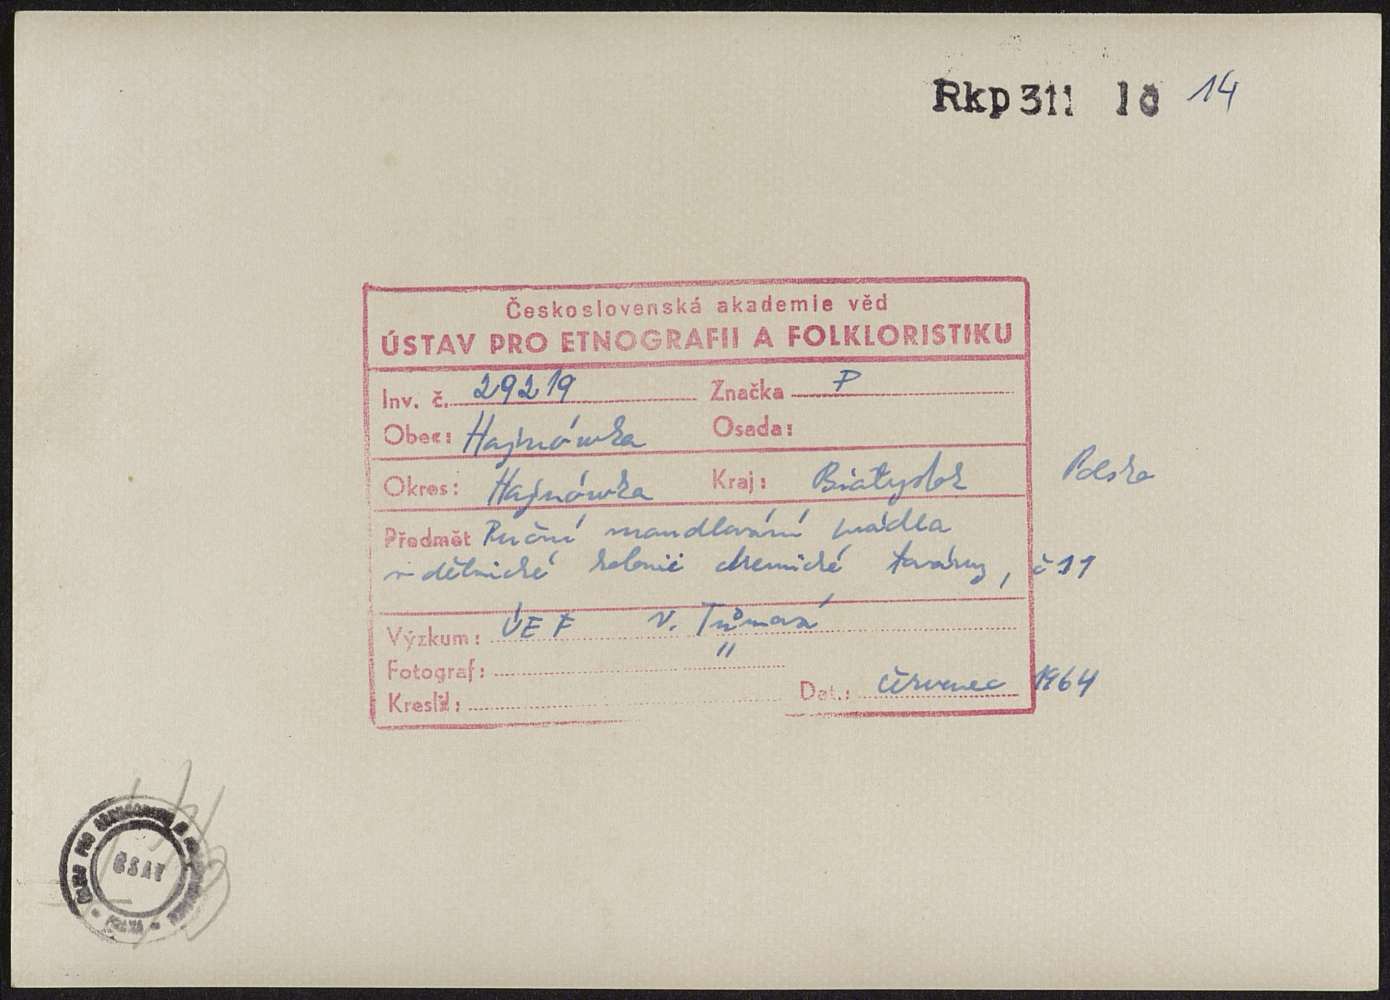 Rkp 311 10 14
Československá akademie věd
ÚSTAV PRO ETNOGRAFII A FOLKLORISTIKU
Inv. č. 29219 Značka P
Obec: Hajnówka Osada:
Okres: Hajnówka Kraj: Białystok Polsko
Předmět Ruční mandlování prádla
v dělnické kolonii chemické továrny, č 11
Výzkum: ÚEF V. Tůmová
Fotograf: "
Kreslil: Dat.: červenec 1964
ČSAV